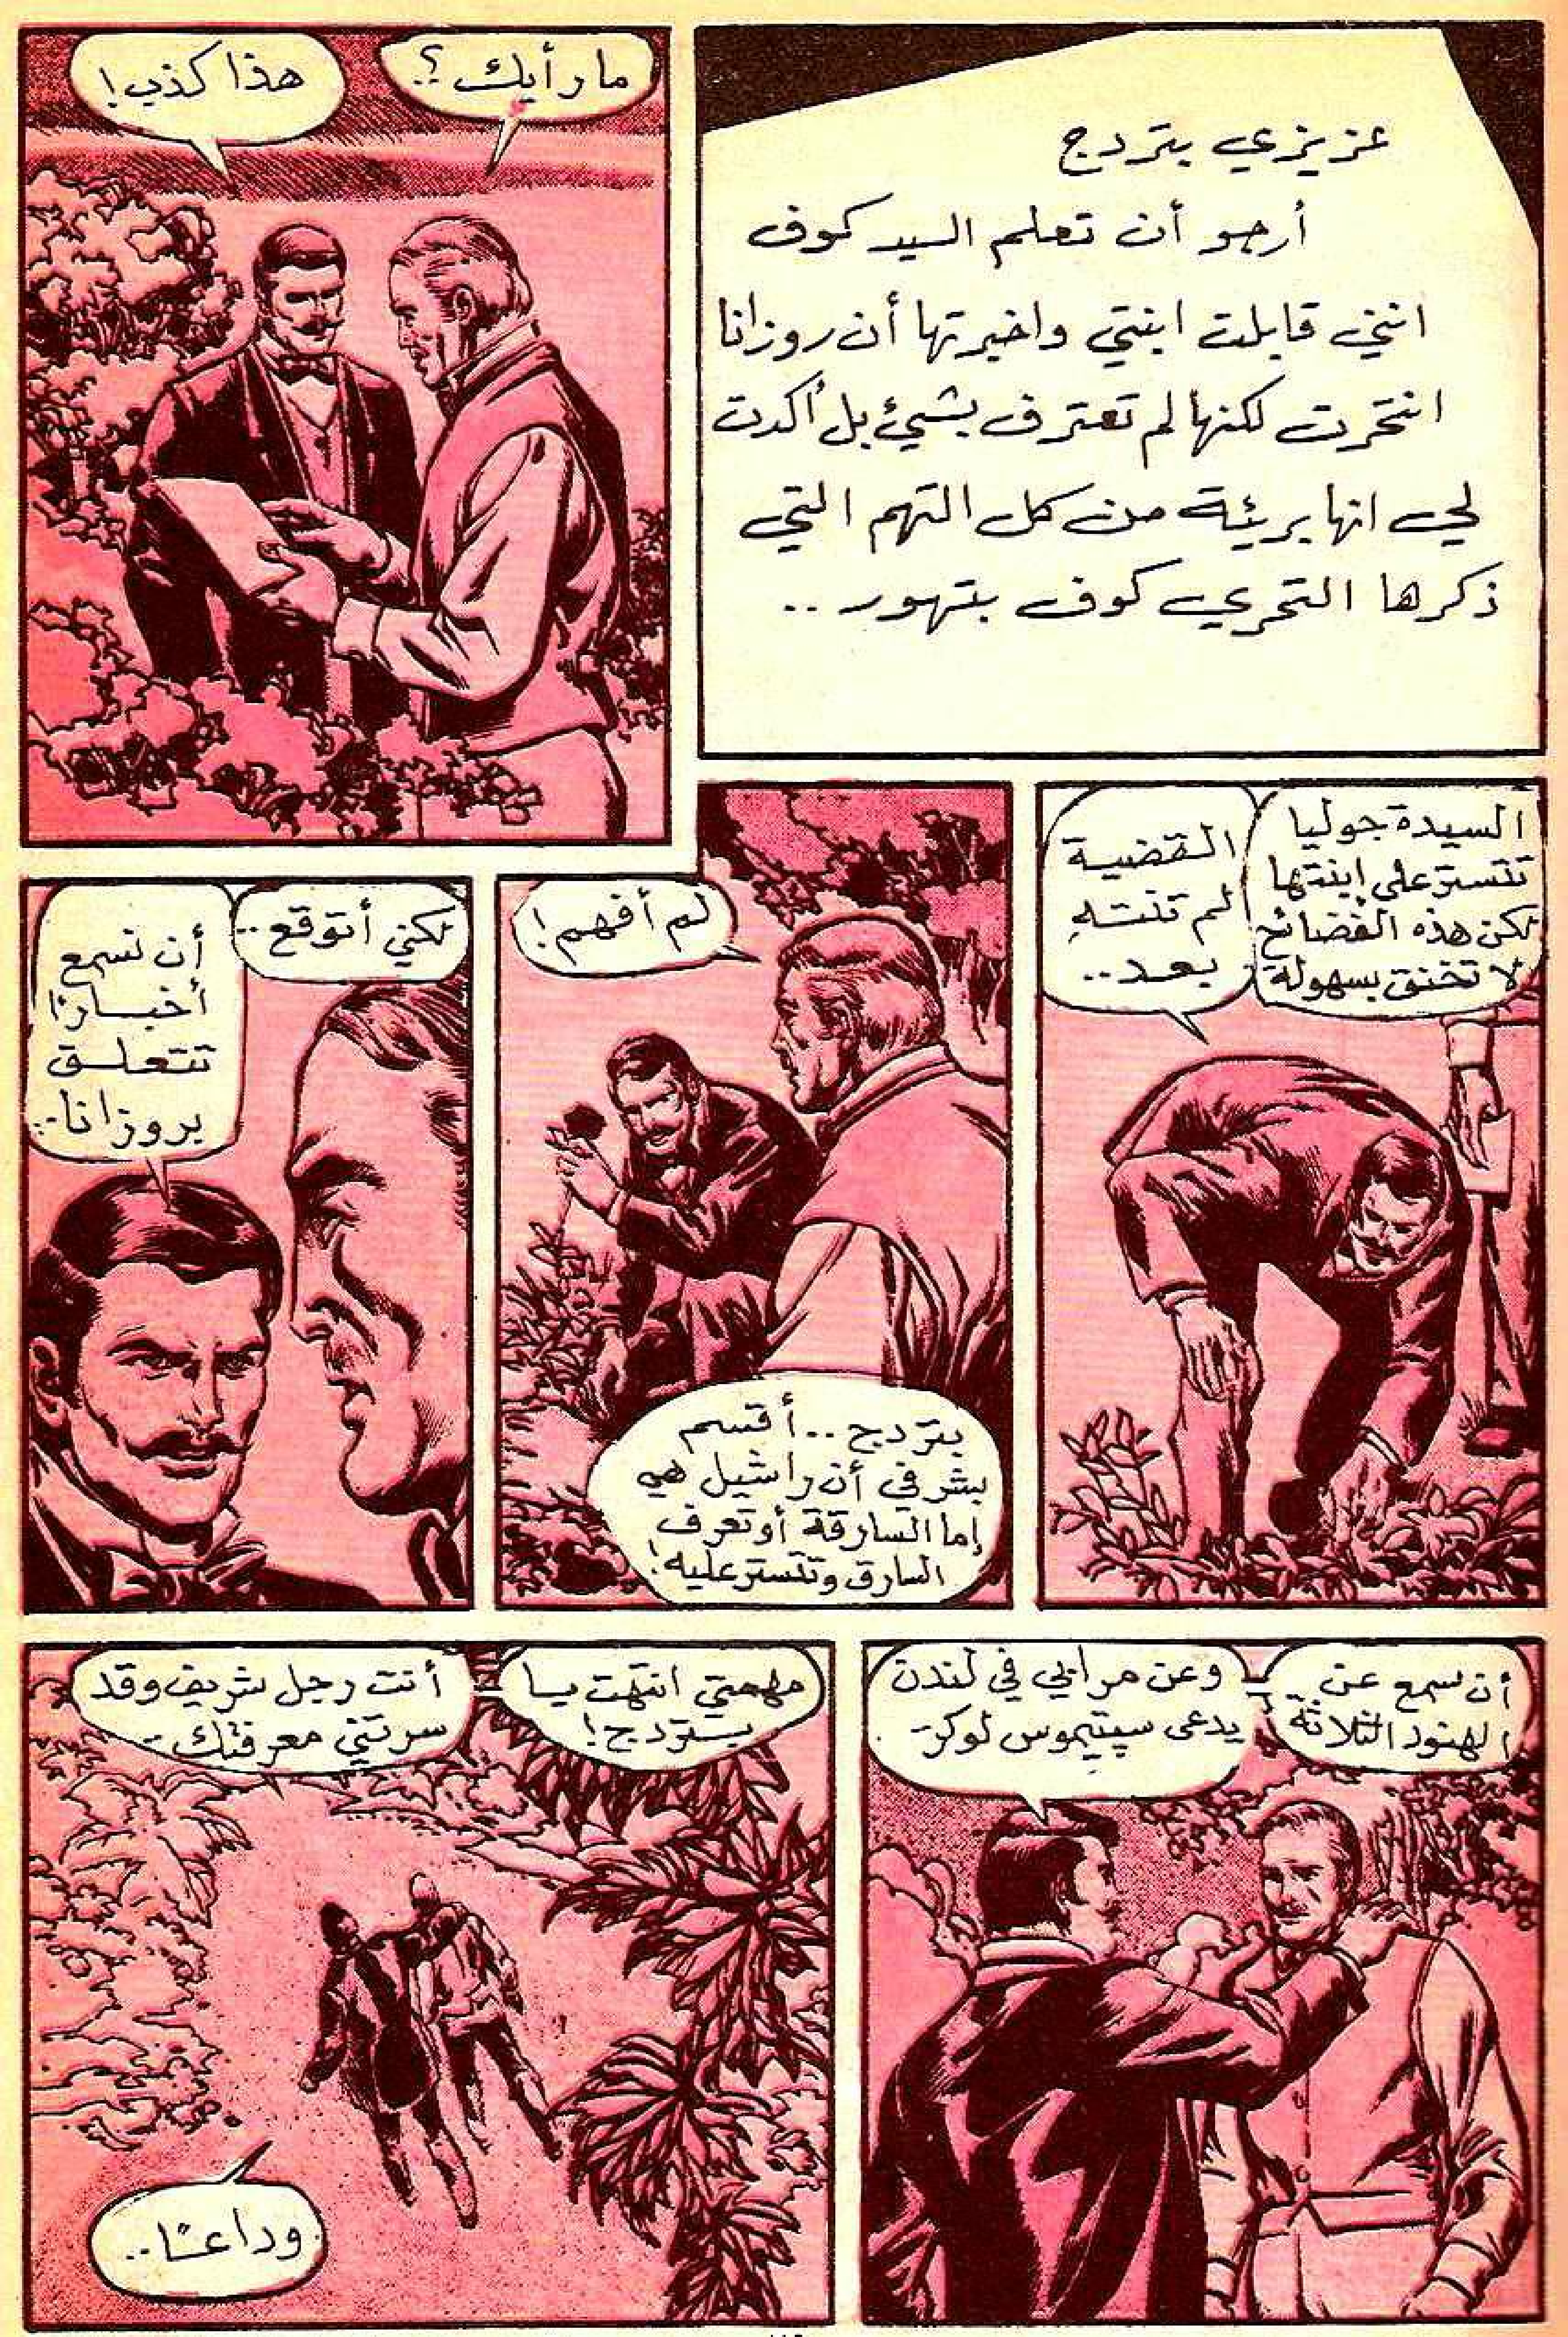 عزيزي بتردج
أرجو أن تعلم السيد كوف
انني قابلت ابنتي واخبرتها أن روزانا
انتحرت لكنها لم تعترف بشيئ بل أكدت
لي انها بريئة من كل التهم التي
ذكرها التحري كوف بتهور ..
ما رأيك ؟.
هذا كذب !
السيدة جوليا
تتستر على ابنتها
لكن هذه الفضائح
لا تختنق بسهولة
القضية
لم تنته
بعد ..
لم أفهم !
بتردج .. أقسم
بشرفي أن راشيل هي
إما السارقة أو تعرف
السارق وتتستر عليه !
لكني أتوقع ..
أن نسمع
أخبارًا
تتعلق
بروزانا ..
أن نسمع عن
الهنود الثلاثة
وعن مرابي في لندن
يدعى سپتيموس لوكر ..
مهمتي انتهت يا
بتردج !
أنت رجل شريف وقد
سرتني معرفتك ..
وداعًا ..